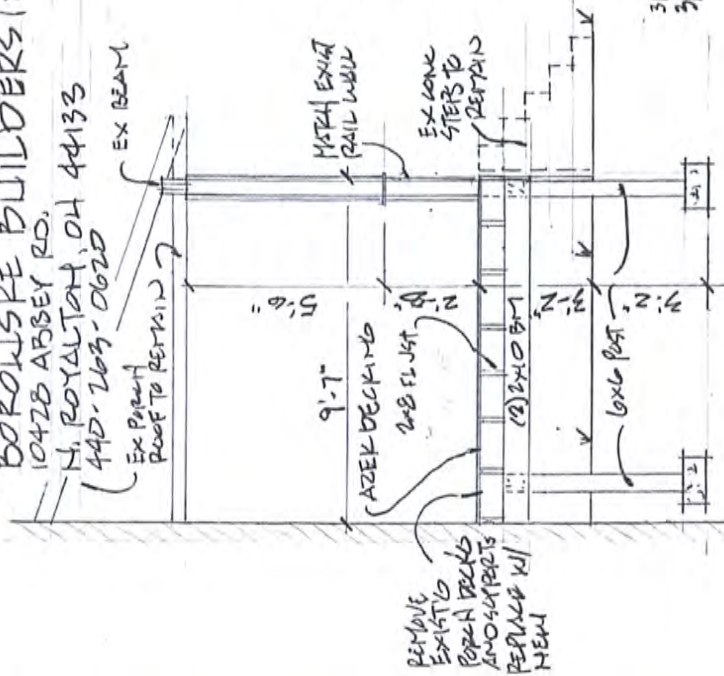 BOROWSKE BUILDERS
10428 ABBEY RD.
N. ROYALTON, OH 44133
440-263-0620
EX PORCH
ROOF TO REMAIN
EX BEAM
MATCH EXIST
RAIL WALL
EX CONC
STEPS TO
REMAIN
5'-6"
9'-7"
AZEK DECKING
2x8 FL JST
(2) 2x10 BM
3'-2"
3'-2"
6x6 POST
REMOVE
EXIST'G
PORCH DECK'G
AND SUPPORTS
REPLACE W/
NEW